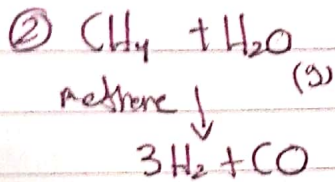 ② CH₄ + H₂O
(g)
methene ↓
3H₂ + CO